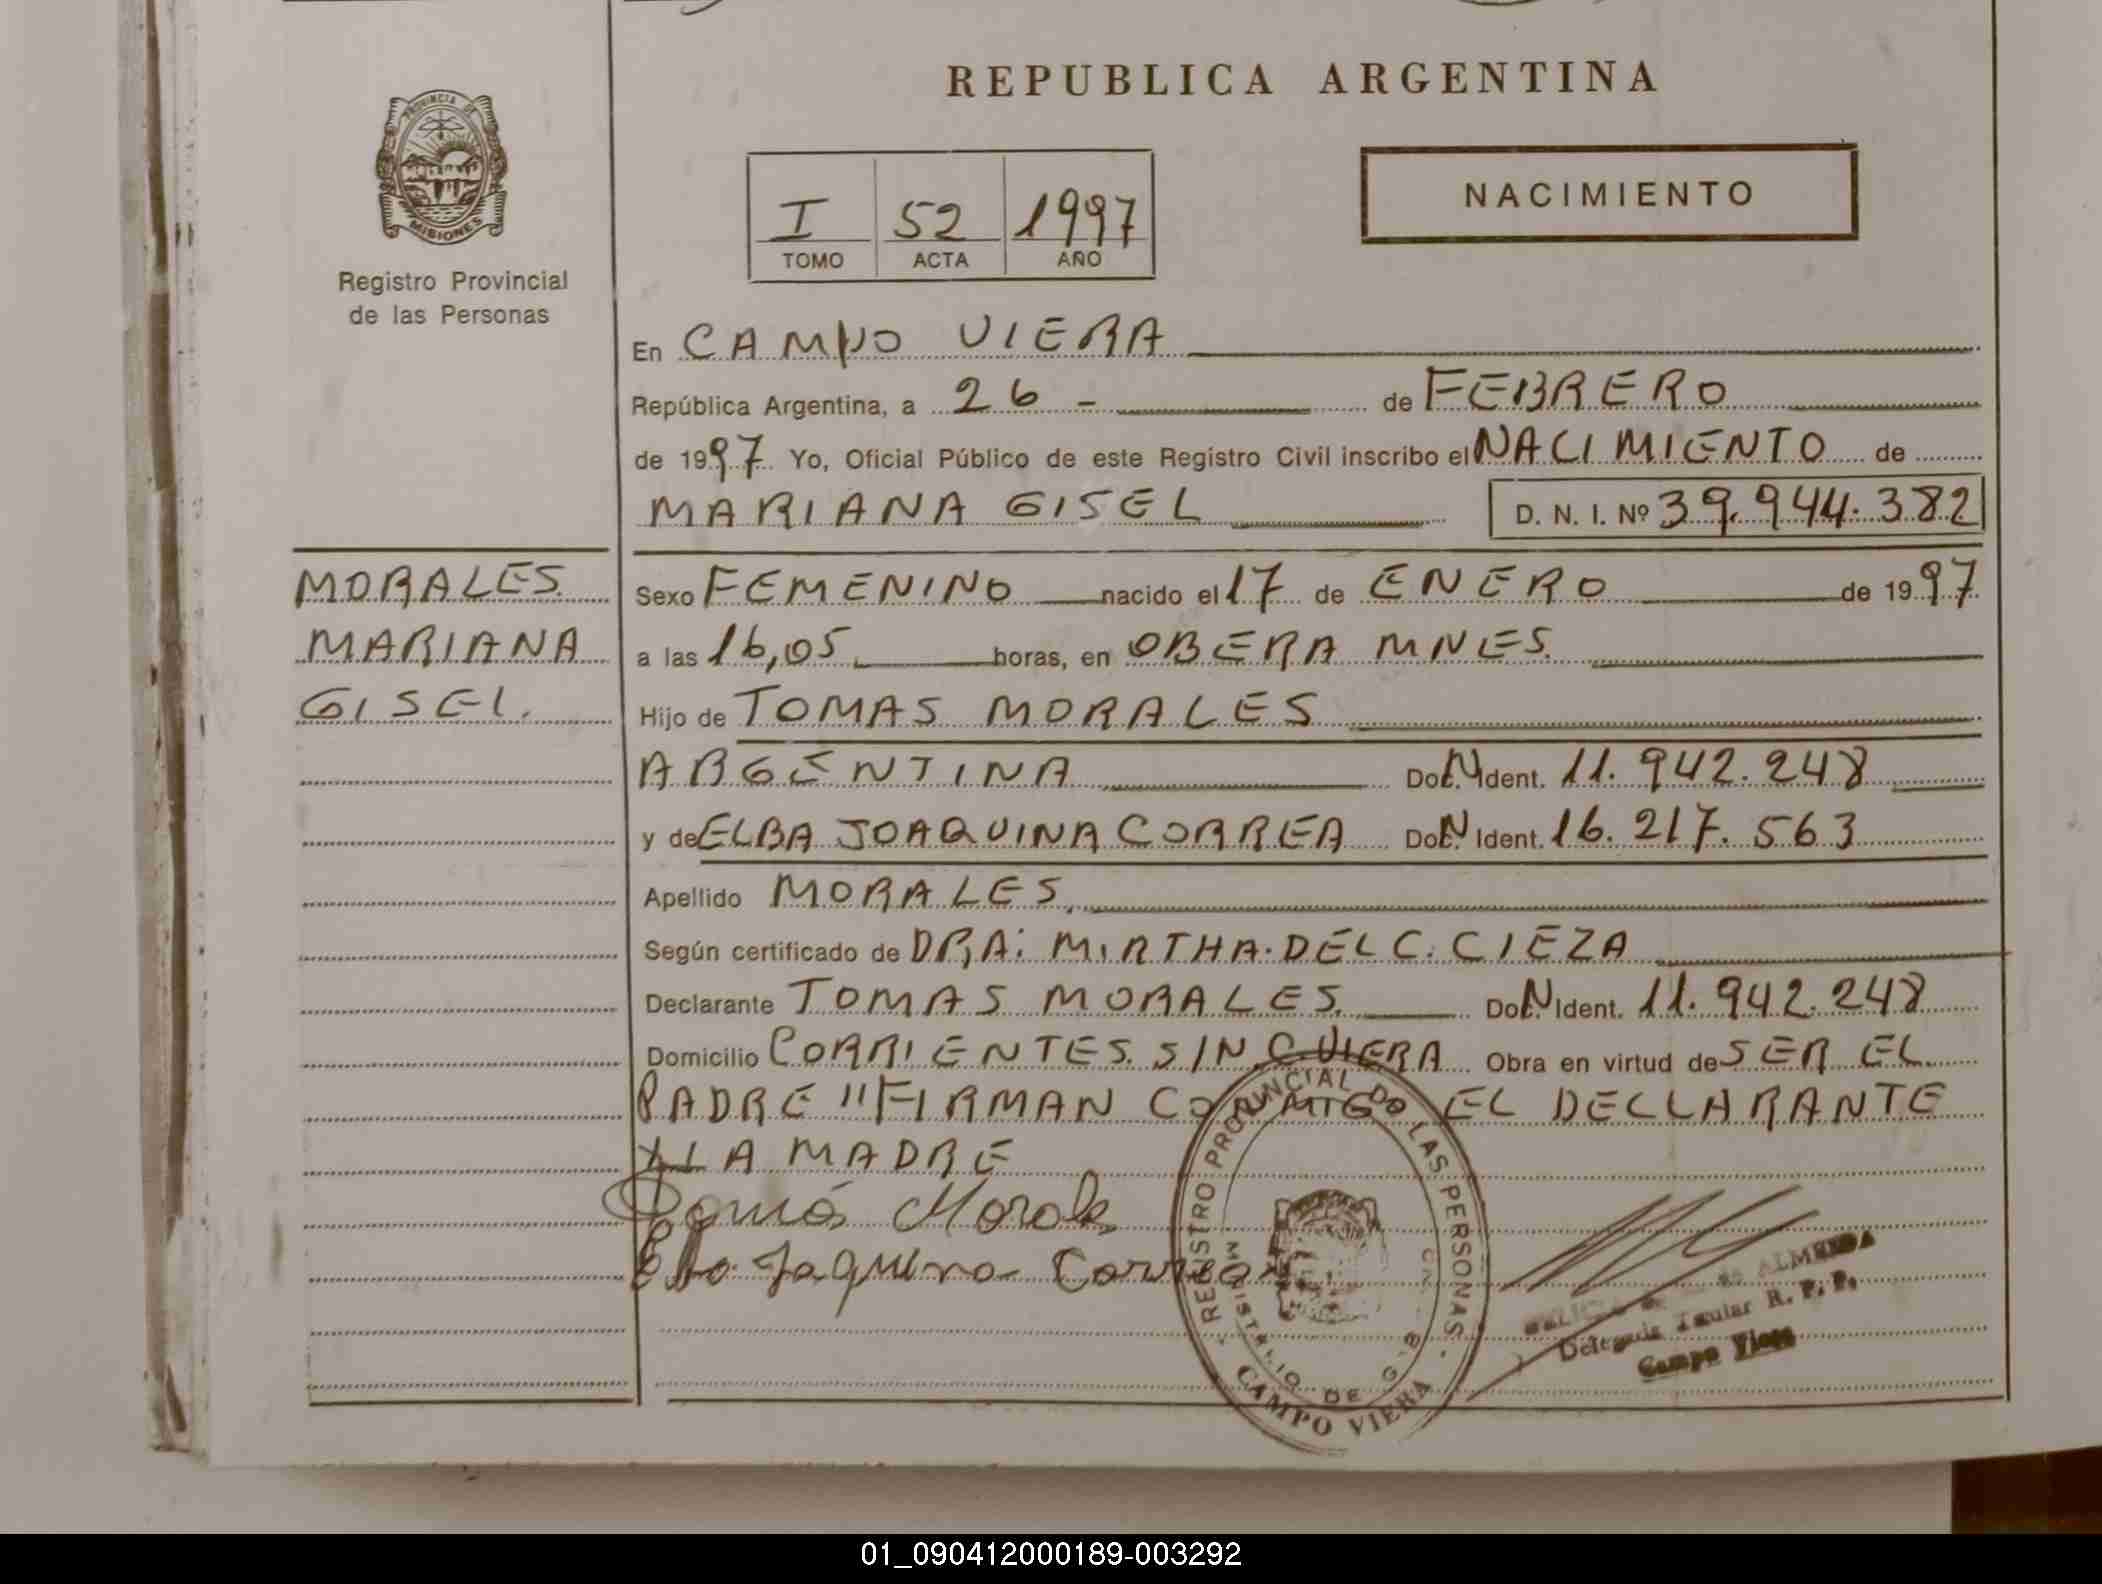 REPUBLICA ARGENTINA
PROVINCIA DE
MISIONES
Registro Provincial
de las Personas
I 52 1997
TOMO ACTA AÑO
NACIMIENTO
En CAMPO VIERA
República Argentina, a 26 - de FEBRERO
de 1997 Yo, Oficial Público de este Registro Civil inscribo el NACIMIENTO de
MARIANA GISEL D. N. I. Nº 39.944.382
MORALES
MARIANA
GISEL.
Sexo FEMENINO nacido el 17 de ENERO de 1997
a las 16,05 horas, en OBERA MNES.
Hijo de TOMAS MORALES
ARGENTINA Doc. N Ident. 11.942.248
y de ELBA JOAQUINA CORREA Doc. N Ident. 16.217.563
Apellido MORALES
Según certificado de DRA: MIRTHA. DEL C. CIEZA
Declarante TOMAS MORALES. Doc. N Ident. 11.942.248
Domicilio CORRIENTES. S/N. C. VIERA Obra en virtud de SER EL
PADRE "FIRMAN CONMIGO EL DECLARANTE
Y LA MADRE
Tomás Morales
Elba Joaquina Correa
REGISTRO PROVINCIAL DE LAS PERSONAS
MINISTERIO DE G
CAMPO VIERA
ALMEIDA
Delegada Titular R. P. P.
Campo Viera
01_090412000189-003292